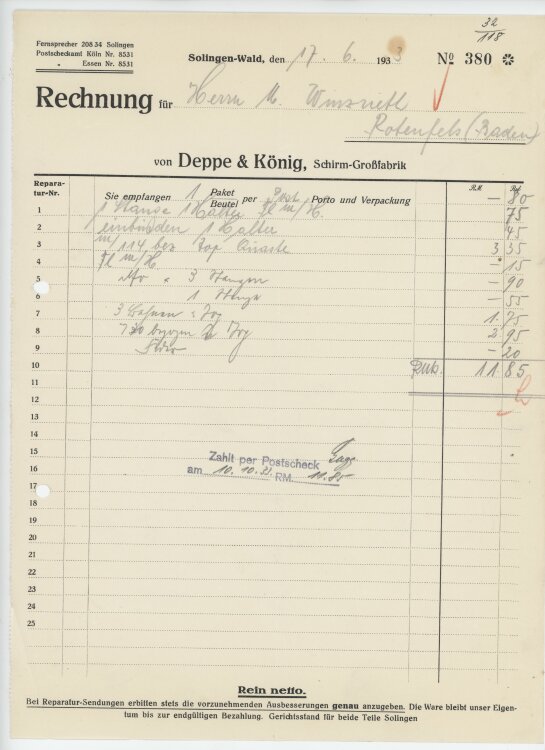 32
118
Fernsprecher 208 34 Solingen
Postscheckamt Köln Nr. 8531
" Essen Nr. 8531
Solingen-Wald, den 17. 6. 1933
№ 380
Rechnung für Herrn M.
Rotenfels (Baden)
von Deppe & König, Schirm-Großfabrik
Repara-
tur-Nr.
RM. Rpf.
Sie empfangen 1 Paket Beutel per Post Porto und Verpackung — 80
1 1 1 Halter 75
2 einbinden 1 Halter 45
3 3 35
4 — 15
5 " 3 Stangen — 90
6 1 Stange — 55
7 3 1 75
8 2 95
9 — 20
10 RM. 11 85
11
12
13
14
15
16
17
18
19
20
21
22
23
24
25
Zahlt per Postscheck
am 10. 10. RM. 11.85
Rein netto.
Bei Reparatur-Sendungen erbitten stets die vorzunehmenden Ausbesserungen genau anzugeben. Die Ware bleibt unser Eigen-
tum bis zur endgültigen Bezahlung. Gerichtsstand für beide Teile Solingen